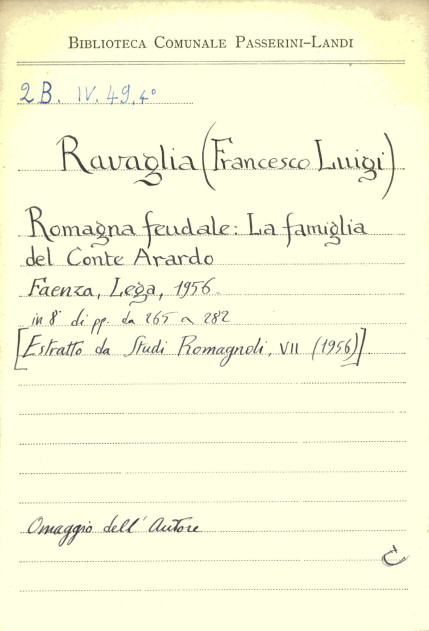 BIBLIOTECA COMUNALE PASSERINI-LANDI
2B. IV. 49, 4°
Ravaglia (Francesco Luigi)
Romagna feudale: La famiglia
del Conte Arardo
Faenza, Lega, 1956.
in 8° di pp. da 265 a 282
[Estratto da Studi Romagnoli, VII (1956)]
Omaggio dell'Autore
C